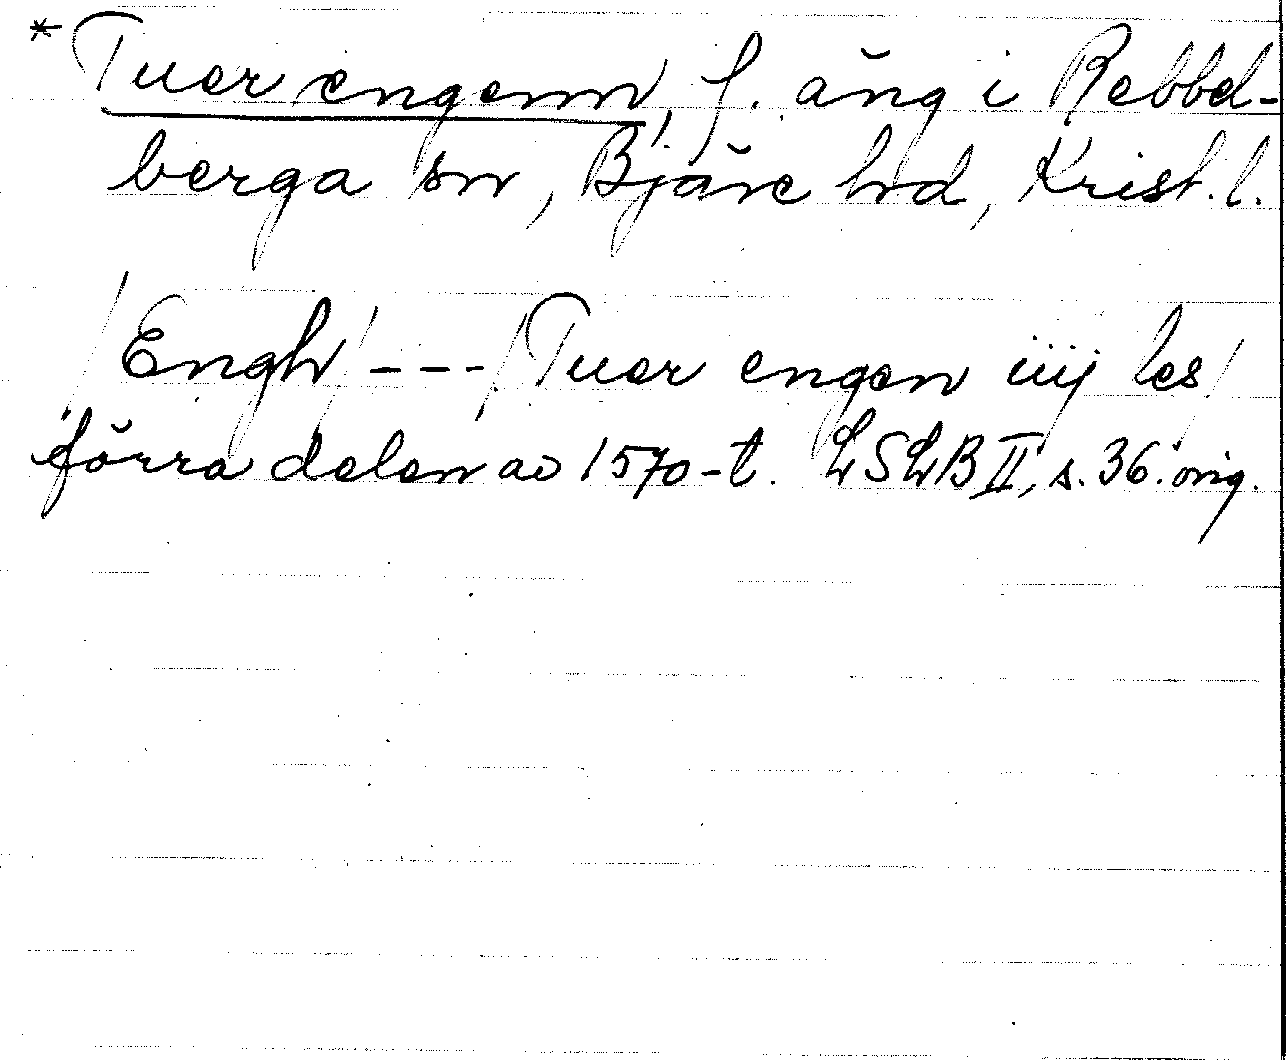 * Tuer engenn, f. äng i Rebbel-
berga sn, Bjäre hd, Krist. l.
/Engh/ --- /Tuer engen iiij les/
förra delen av 1570-t. LSLB II, s. 36. orig.